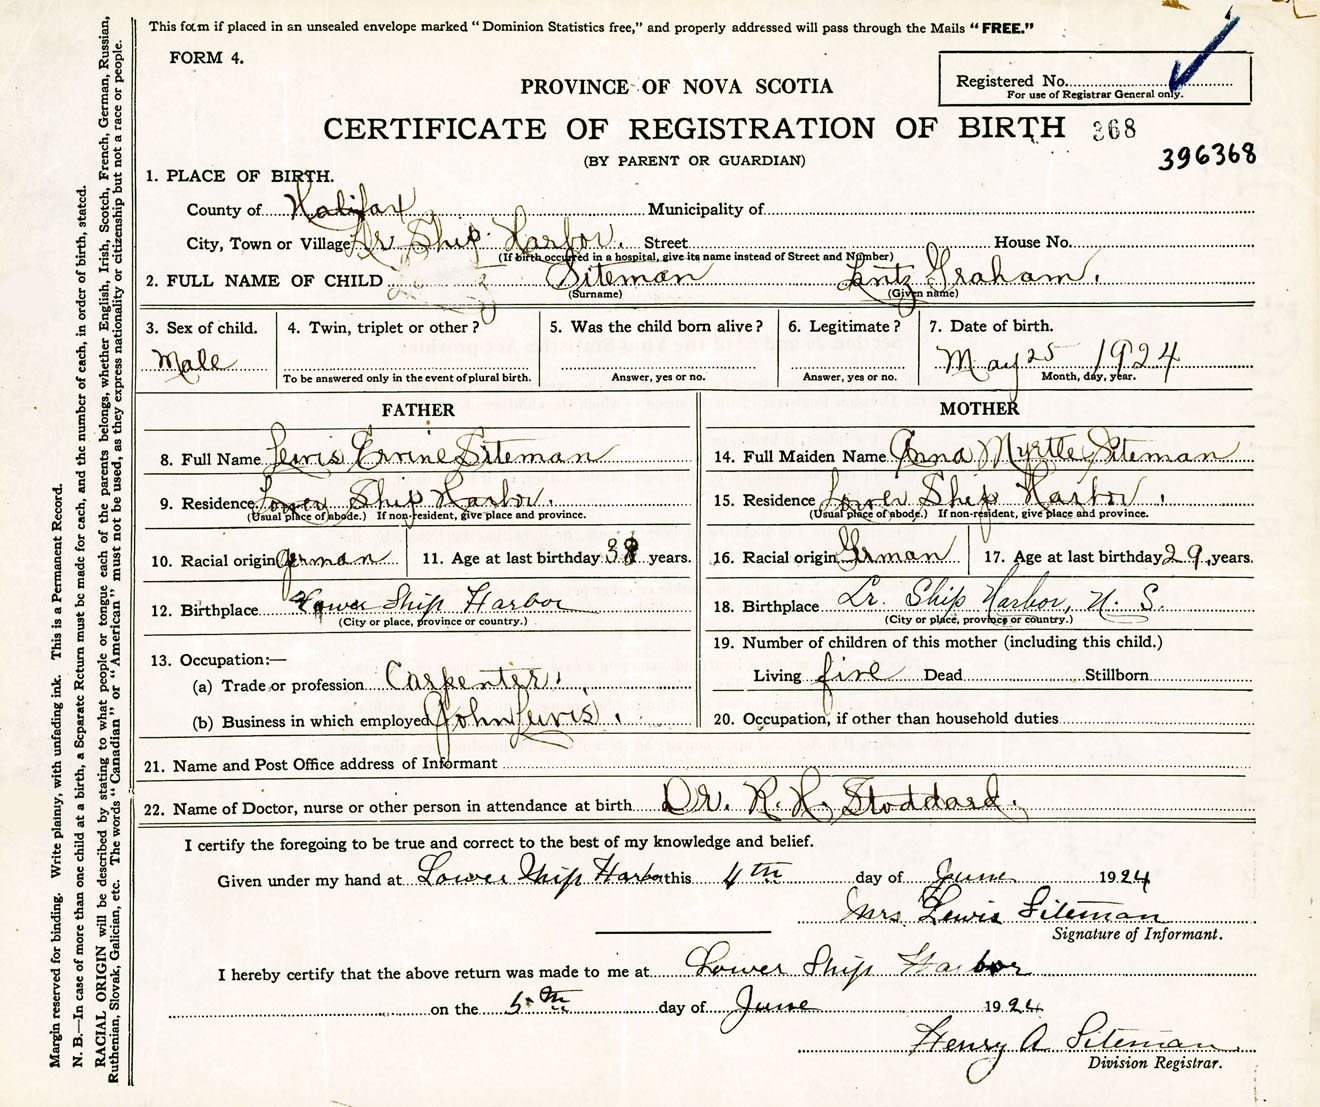 This form if placed in an unsealed envelope marked "Dominion Statistics free," and properly addressed will pass through the Mails "FREE."
FORM 4.
PROVINCE OF NOVA SCOTIA
Registered No.
For use of Registrar General only.
CERTIFICATE OF REGISTRATION OF BIRTH 368
396368
(BY PARENT OR GUARDIAN)
1. PLACE OF BIRTH.
County of Halifax Municipality of
City, Town or Village Lr. Ship Harbor. Street House No.
(If birth occurred in a hospital, give its name instead of Street and Number)
2. FULL NAME OF CHILD Siteman Lntz Graham.
(Surname) (Given name)
3. Sex of child. 4. Twin, triplet or other? 5. Was the child born alive? 6. Legitimate? 7. Date of birth.
Male May 25 1924
To be answered only in the event of plural birth. Answer, yes or no. Answer, yes or no. Month, day, year.
FATHER MOTHER
8. Full Name Lewis Ervine Siteman 14. Full Maiden Name Anna Myrtle Siteman
9. Residence Lower Ship Harbor. 15. Residence Lower Ship Harbor.
(Usual place of abode.) If non-resident, give place and province. (Usual place of abode.) If non-resident, give place and province.
10. Racial origin German 11. Age at last birthday 38 years. 16. Racial origin German 17. Age at last birthday 29 years.
12. Birthplace Lower Ship Harbor 18. Birthplace Lr. Ship Harbor, N. S.
(City or place, province or country.) (City or place, province or country.)
19. Number of children of this mother (including this child.)
13. Occupation:—
(a) Trade or profession Carpenter. Living five Dead Stillborn
(b) Business in which employed John Lewis. 20. Occupation, if other than household duties
21. Name and Post Office address of Informant
22. Name of Doctor, nurse or other person in attendance at birth Dr. R. H. Stoddard.
I certify the foregoing to be true and correct to the best of my knowledge and belief.
Given under my hand at Lower Ship Harbor this 4th day of June 1924
Mrs Lewis Siteman
Signature of Informant.
I hereby certify that the above return was made to me at Lower Ship Harbor
on the 5th day of June 1924
Henry A Siteman
Division Registrar.
Margin reserved for binding. Write plainly, with unfading ink. This is a Permanent Record.
N. B.—In case of more than one child at a birth, a Separate Return must be made for each, and the number of each, in order of birth, stated.
RACIAL ORIGIN will be described by stating to what people or tongue each of the parents belongs, whether English, Irish, Scotch, French, German, Russian,
Ruthenian, Slovak, Galician, etc. The words "Canadian" or "American" must not be used, as they express nationality or citizenship but not a race or people.